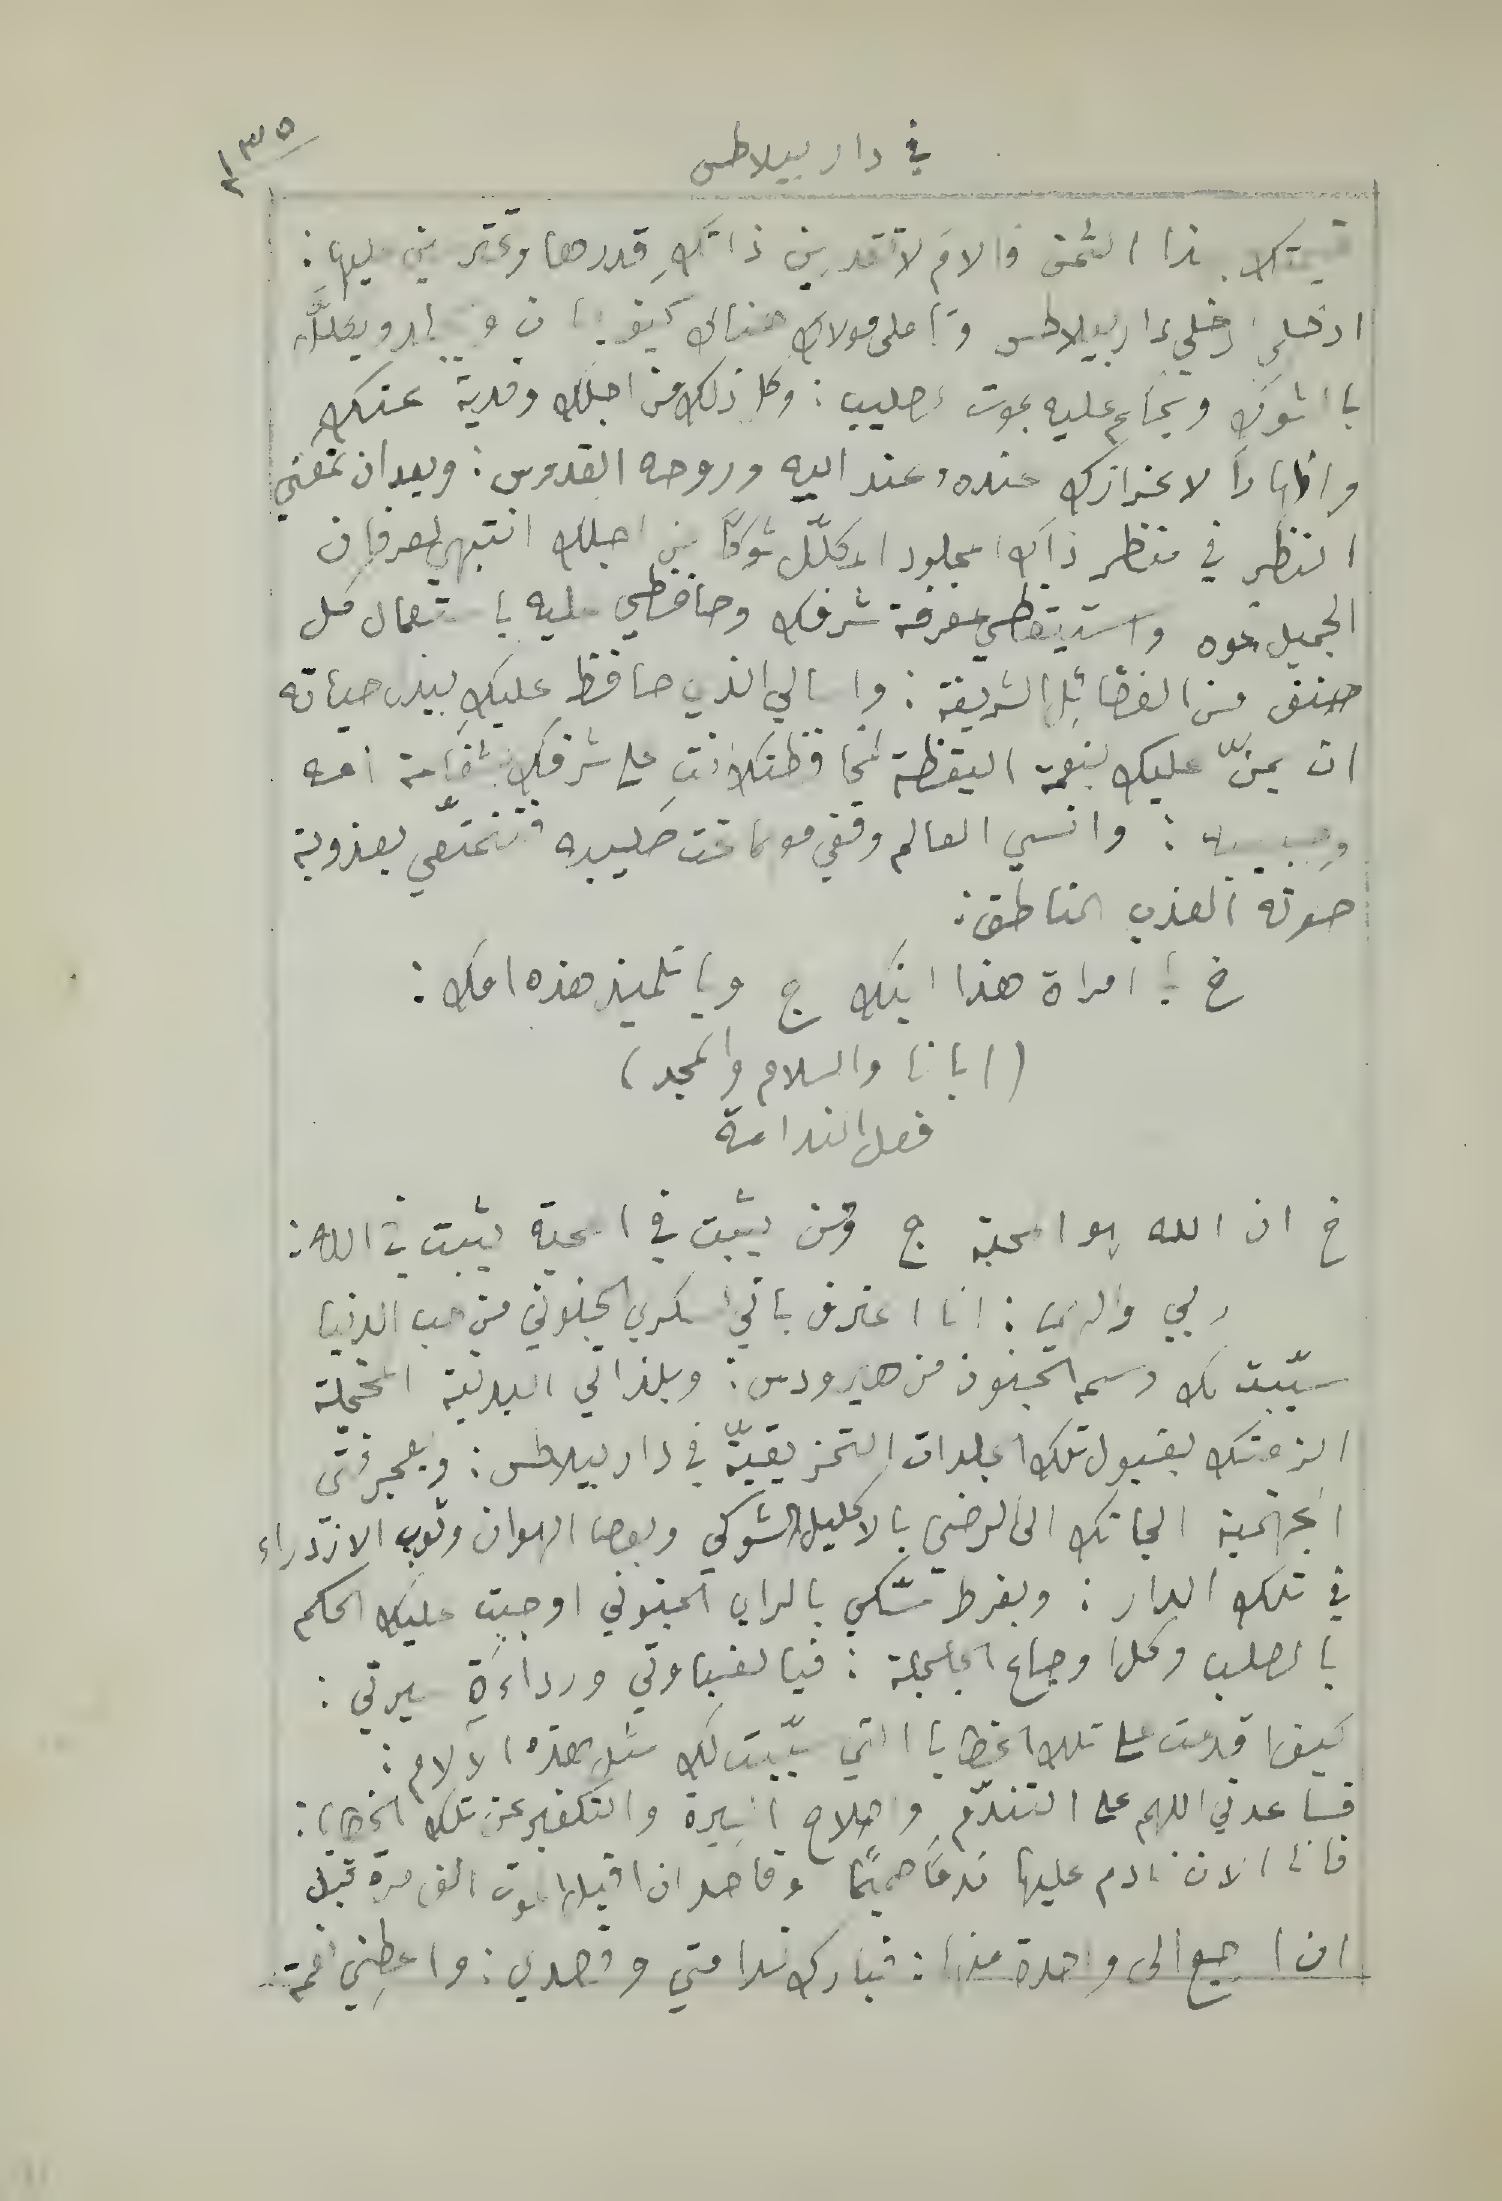 في دار بيلاطس
٢٣٥
قيمتك هذا الثمن فالامَ لا تقدرين ذاتكِ قدرها وتحترين عليها:
ادخلي ادخلي دار بيلاطس وتأملي مولاك هناك كيف يهان و ويكلَّل
بالشوك ويحكم عليه بموت الصليب: وكل ذلك من اجلك وفدية عنك
واظهاراً لاعزازك عنده وعند ابيه وروحه القدوس: وبعد ان تمعني
النظر في منظر ذاك المجلود المكلّل شوكًا من اجلك انتبهي لعرفان
الجميل نحوه واستيقظي لمعرفة شرفك وحافظي عليه باستعمال كل
صنف من الفضائل الشريفة: واسالي الذي حافظ عليكِ ببذل حياته
ان يمنّ عليك بنعمة اليقظة لمحافظتك انتِ على شرفك بشفاعة امه
وحبيبه: وانسي العالم وقفي معهما تحت صليبه فتتمتّعي بعذوبة
صوته العذب الناطق:
خ يا امراة هذا ابنك ج ويا تلميذ هذه امك:
(ابانا والسلام والمجد)
فعل الندامة
خ ان الله هو المحبة ج ومن يثبت في المحبة يثبت في الله:
ربي والهي: انا اعترف باني بسكري الجنوني من حب الدنيا
سبّبت لك وسمة الجنون من هيرودس: وبلذاتي البدنية المخجلة
الزمتك بقبول تلك الجلدات التمزيقيّة في دار بيلاطس: وبعجرفتي
الجهنمية الجاتك الى الرضى بالاكليل الشوكي وبعصا الهوان وثوب الازدراء
في تلك الدار: وبفرط تمسّكي بالراي الجنوني اوجبت عليك الحكم
بالصلب وكل اوجاع الجلجلة: فيا لغباوتي ورداءةِ سيرتي:
كيف اقدمت على تلك الخطايا التي سبّبت لك مثل هذه الآلام:
فساعدني اللهم على التندّم واصلاح السيرة والتكفير عن تلك الخطايا:
فانا الان نادم عليها ندمًا صميمًا وقاصد ان اقبل الموت الف مرة قبل
ان ارجع الى واحدة منها: فبارك ندامتي وقصدي: واعطِني نعمة